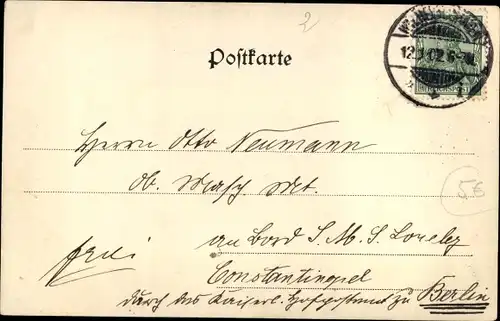 2
Postkarte
12.1.02.6-7N.
REICHSPOST
Herrn Otto Neumann
Ob. Masch. Mt.
5€
frei
an Bord S. M. S. Loreley
Constantinopel
durch das Kaiserl. Hofpostamt zu Berlin